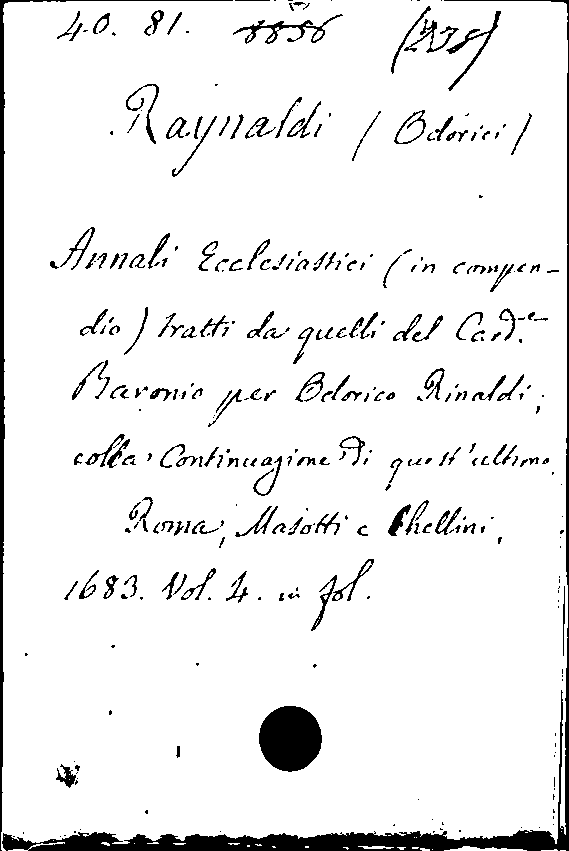 40. 81. 8856
Raynaldi (Odorici)
Annali Ecclesiastici (in compen-
dio) tratti da quelli del Card.e
Baronio per Odorico Rinaldi,
colla Continuazione di quest'ultimo.
Roma, Masotti e Chellini,
1683. Vol. 4. in fol.